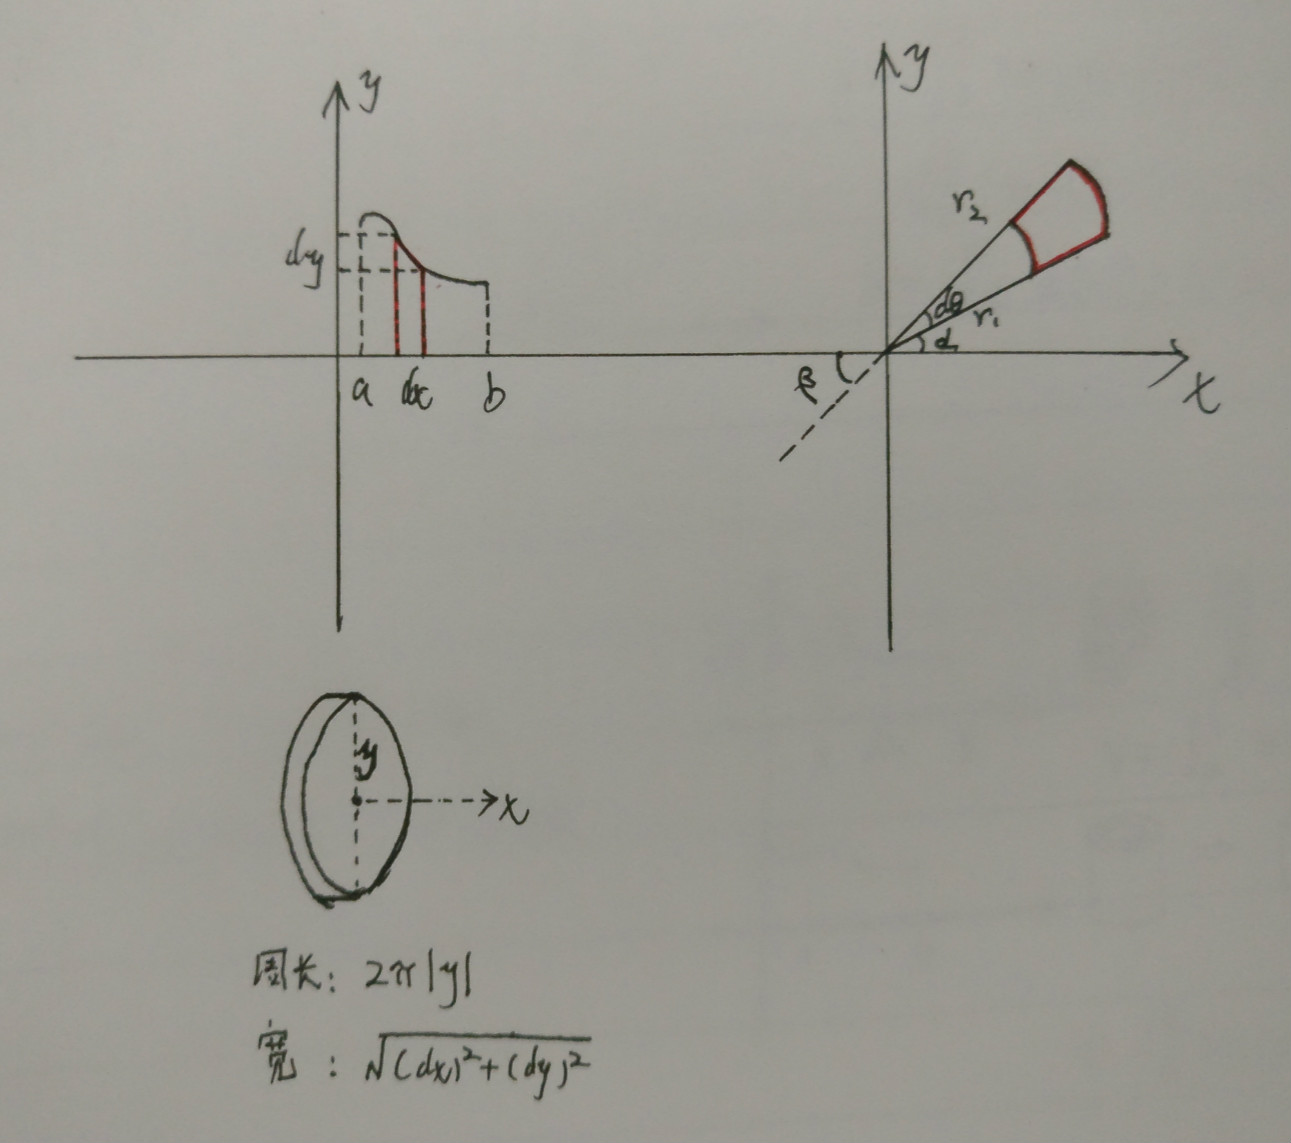 y
dy
a dx b
y
r₂
dθ
r₁
α
β
x
y
x
周长: 2π|y|
宽: √(dx)²+(dy)²